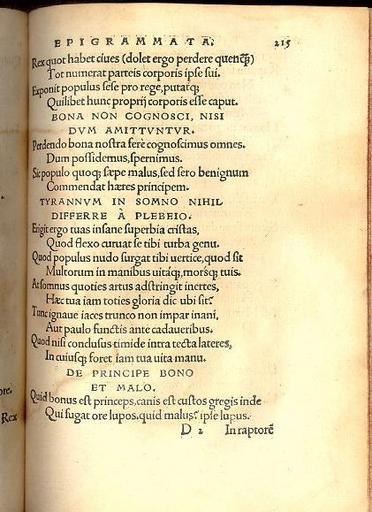 EPIGRAMMATA. 215
Rex quot habet ciues (dolet ergo perdere quenq̃)
Tot numerat parteis corporis ipse sui.
Exponit populus sese pro rege, putatq;
Quilibet hunc proprij corporis esse caput.
BONA NON COGNOSCI, NISI
DVM AMITTVNTVR.
Perdendo bona nostra ferè cognoscimus omnes.
Dum possidemus, spernimus.
Sic populo quoq; sæpe malus, sed sero benignum
Commendat hæres principem.
TYRANNVM IN SOMNO NIHIL
DIFFERRE À PLEBEIO.
Erigit ergo tuas insane superbia cristas,
Quod flexo curuat se tibi turba genu.
Quod populus nudo surgat tibi uertice, quod sit
Multorum in manibus uitaq;, morsq; tuis.
At somnus quoties artus adstringit inertes,
Hæc tua iam toties gloria dic ubi sit?
Tunc ignaue iaces trunco non impar inani,
Aut paulo functis ante cadaueribus.
Quod nisi conclusus timide intra tecta lateres,
In cuiusq; foret iam tua uita manu.
DE PRINCIPE BONO
ET MALO.
Quid bonus est princeps, canis est custos gregis inde
Qui fugat ore lupos, quid malus? ipse lupus.
D 2 In raptorẽ
ore.
Rex